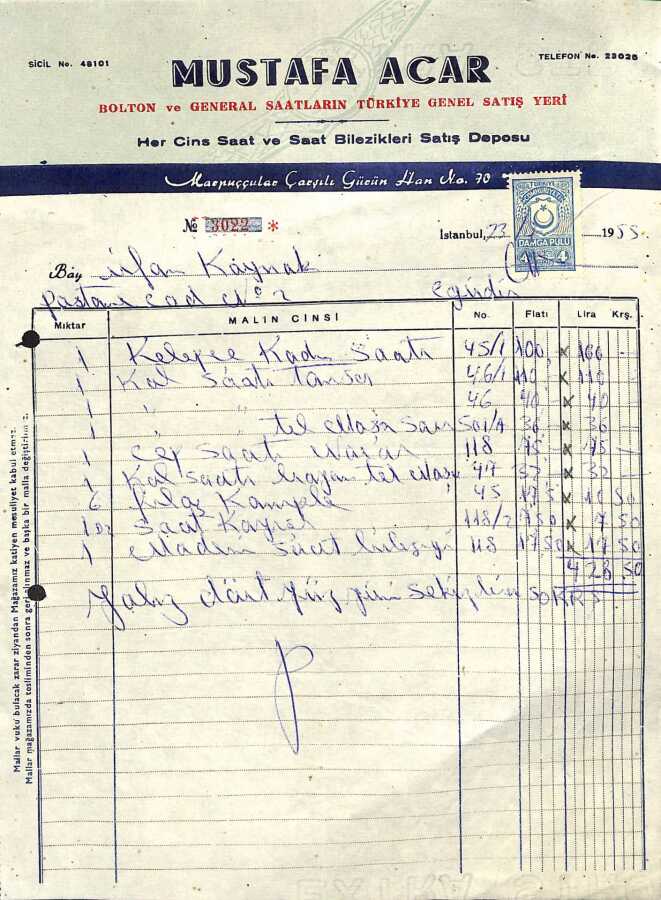 SİCİL No. 48101
TELEFON No. 23026
MUSTAFA ACAR
BOLTON ve GENERAL SAATLARIN TÜRKİYE GENEL SATIŞ YERİ
Her Cins Saat ve Saat Bilezikleri Satış Deposu
Marpuççular Çarşılı Gücün Han No. 70
TÜRKİYE CUMHURİYETİ
DAMGA PULU
4 4
№ 3022 *
İstanbul, 23 1955
Bay İrfan Kaynak
Pastane cad No 2 Eğirdir
Miktar MALIN CİNSİ No. Fiatı Lira Krş.
1 Kelepçe Kadın Saatı 45/1 100, x 100 —
1 Kol Saatı 46/1 110 x 110 —
1 " " 46 40 x 40 —
1 " tel 501/A 36 x 36 —
1 Cep Saatı 118 75 — x 75 —
1 Kol Saatı tel 47 32 — x 32 —
6 45 175 x 10 50
1 Dz Saat Kayışı 118/2 750 x 7 50
1 Madeni Saat 118 1750 x 17 50
428 50
Yalnız dört yüz yirmi sekiz lira 50 KRŞ
Mallar vuku bulacak zarar ziyandan Mağazamız katiyen mesuliyet kabul etmez.
Mallar mağazamızda tesliminden sonra geri alınmaz ve başka bir malla değiştirilmez.